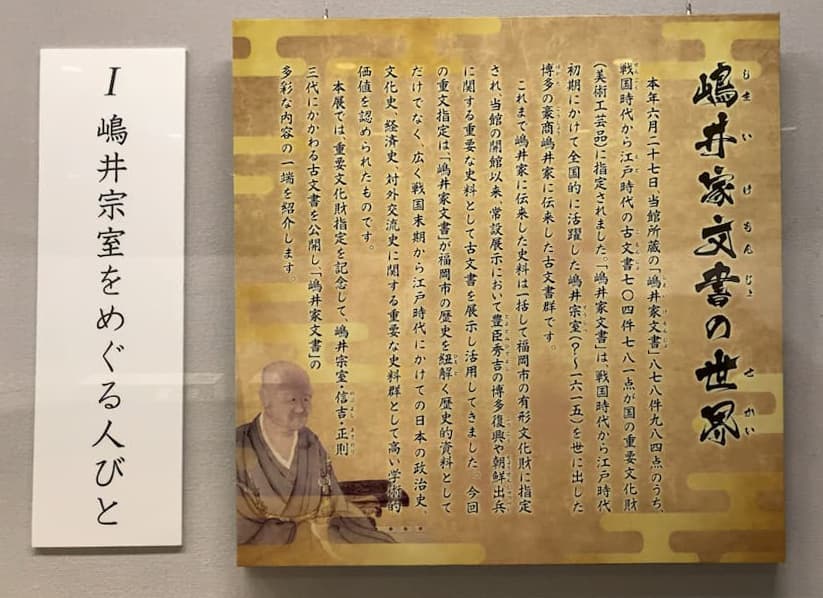 嶋井家文書の世界
本年六月二十七日、当館所蔵の「嶋井家文書」八七八件九八四点のうち、
戦国時代から江戸時代の古文書七〇四件七八一点が国の重要文化財
(美術工芸品)に指定されました。「嶋井家文書」は戦国時代から江戸時代
初期にかけて全国的に活躍した嶋井宗室(?~一六一五)を世に出した
博多の豪商嶋井家に伝来した古文書群です。
これまで嶋井家に伝来した史料は一括して福岡市の有形文化財に指定
され、当館の開館以来、常設展示において豊臣秀吉の博多復興や朝鮮出兵
に関する重要な史料として古文書を展示し活用してきました。今回
の重文指定は「嶋井家文書」が福岡市の歴史を紐解く歴史的資料として
だけでなく、広く戦国末期から江戸時代にかけての日本の政治史、
文化史、経済史、対外交流史に関する重要な史料群として高い学術的
価値を認められたものです。
本展では、重要文化財指定を記念して、嶋井宗室・信吉・正則
三代にかかわる古文書を公開し、「嶋井家文書」の
多彩な内容の一端を紹介します。
I 嶋井宗室をめぐる人びと